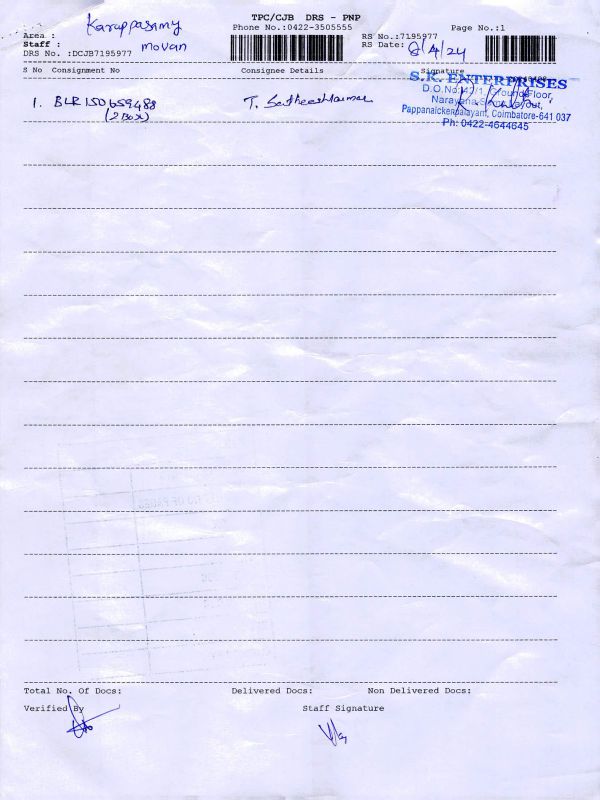 TPC/CJB DRS - PNP
Karuppasamy
Area :
Phone No.:0422-3505555
RS No.:7195977
Page No.:1
Staff :
movan
RS Date: 8/4/24
DRS No. :DCJB7195977
S No Consignment No Consignee Details Signature
S.K. ENTERPRISES
1. BLR150659488 T. Satheeshkumar
(2 Box)
D.O.No:42/1, Ground Floor,
Narayana Layout,
Pappanaickenpalayam, Coimbatore-641 037
Ph: 0422-4644645
NO OF PAGES
Total No. Of Docs: Delivered Docs: Non Delivered Docs:
Verified By Staff Signature